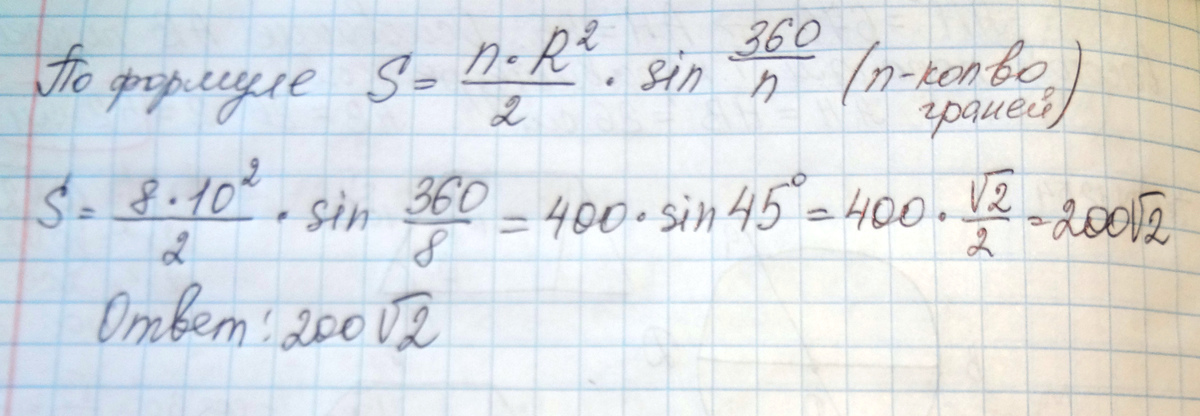 По формуле S = n·R²/2 · sin 360/n (n-кол во граней)
S = 8·10²/2 · sin 360/8 = 400·sin 45° = 400·√2/2 = 200√2
Ответ: 200√2